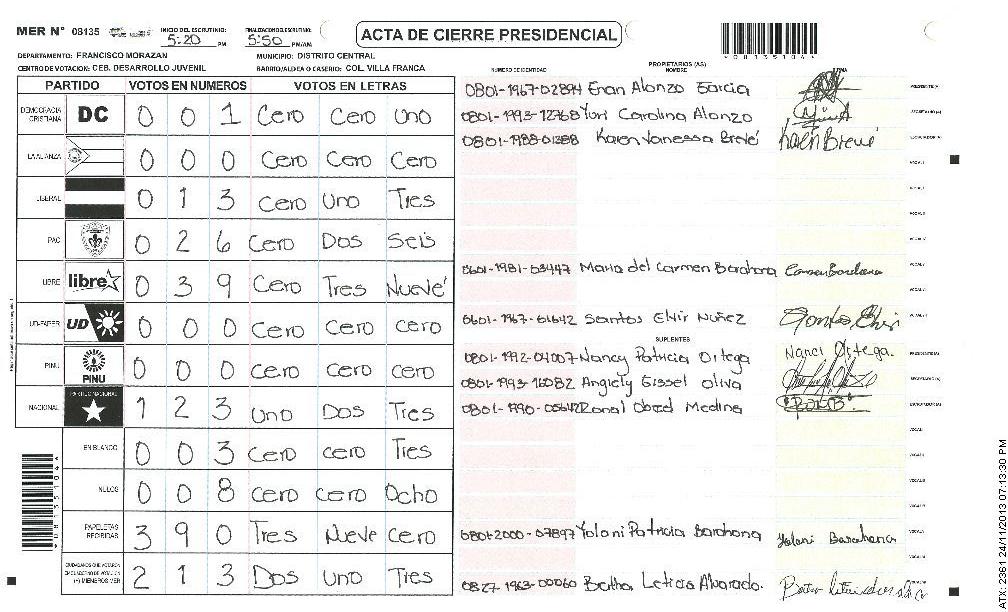 MER N° 08135 INICIO DEL ESCRUTINIO: 5:20 PM FINALIZACION ESCRUTINIO: 5:50 PM/AM ACTA DE CIERRE PRESIDENCIAL
DEPARTAMENTO: FRANCISCO MORAZAN MUNICIPIO: DISTRITO CENTRAL
CENTRO DE VOTACION: CEB. DESARROLLO JUVENIL BARRIO/ALDEA O CASERIO: COL. VILLA FRANCA
PARTIDO VOTOS EN NUMEROS VOTOS EN LETRAS
DEMOCRACIA CRISTIANA DC 0 0 1 Cero Cero Uno
LA ALIANZA 0 0 0 Cero Cero Cero
LIBERAL 0 1 3 Cero Uno Tres
PAC 0 2 6 Cero Dos Seis
LIBRE libre 0 3 9 Cero Tres Nueve
UD-FAPER UD 0 0 0 Cero Cero Cero
PINU PINU 0 0 0 Cero Cero Cero
NACIONAL PARTIDO NACIONAL 1 2 3 Uno Dos Tres
EN BLANCO 0 0 3 Cero cero Tres
NULOS 0 0 8 Cero cero Ocho
PAPELETAS RECIBIDAS 3 9 0 Tres Nueve Cero
CIUDADANOS QUE VOTARON EN CUADERNO DE VOTACION (+) MIEMBROS MER 2 1 3 Dos Uno Tres
NUMERO DE IDENTIDAD PROPIETARIOS (AS) NOMBRE FIRMA
0801-1967-02894 Eran Alonzo Garcia PRESIDENTE(A)
0801-1993-12768 Yuri Carolina Alonzo SECRETARIO(A)
0801-1988-01388 Karen Vanessa Brevé Karen Brevé ESCRUTADOR(A)
VOCAL I
0601-1981-03447 Maria del Carmen Barahona Carmen Barahona
0601-1967-01642 Santos Elvir Nuñez Santos Elvir
SUPLENTES
0801-1992-04007 Nancy Patricia Ortega Nanci Ortega. PRESIDENTE(A)
0801-1993-16082 Angiely Gissel Oliva SECRETARIO(A)
0801-1990-05642 Ronal Obed Medina ESCRUTADOR(A)
0801-2000-07897 Yolani Patricia Barahona Yolani Barahona
0827-1963-00060 Bertha Leticia Alvarado.
ATX-2381 24/11/2013 07:13:30 PM